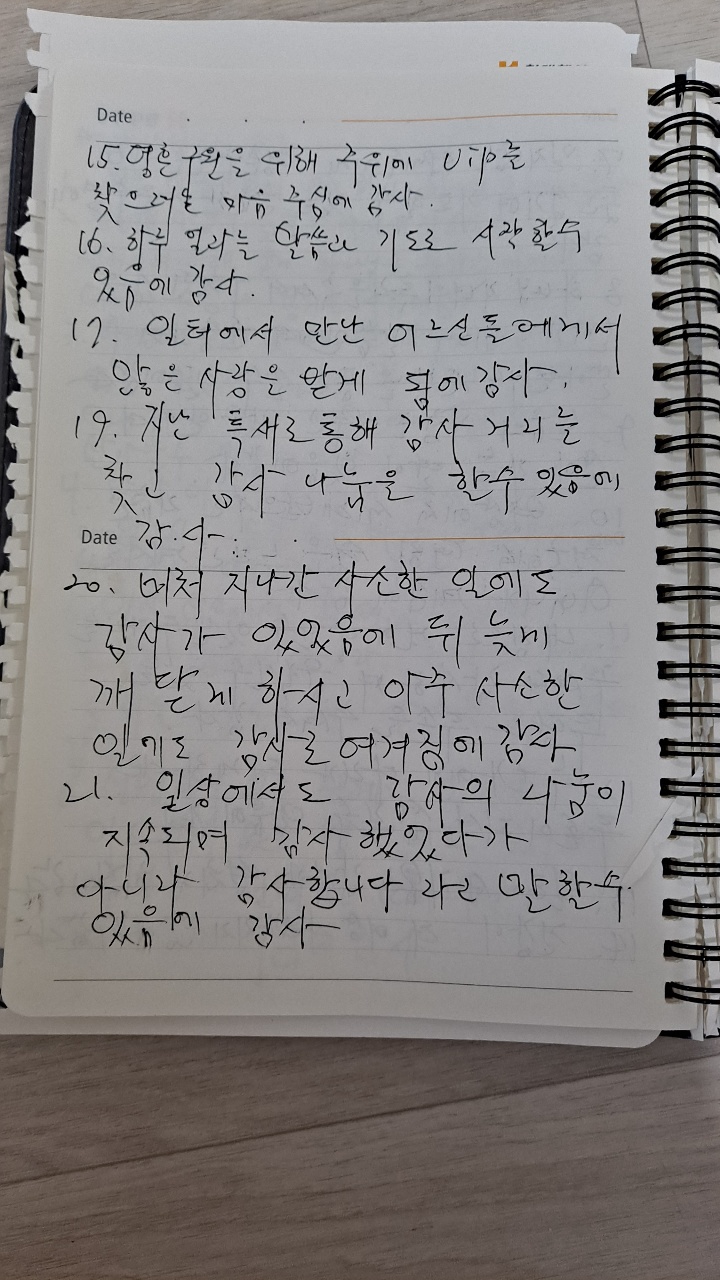 Date
15.영혼구원을 위해 주위에 vip를
찾으려는 마음 주심에 감사.
16. 하루 일과를 말씀과 기도로 시작할수
있음에 감사.
17. 일터에서 만난 어느신들에게서
많은 사랑을 받게 됨에 감사.
19. 지난 특새로 통해 감사 거리를
찾고 감사 나눔을 할수 있음에
Date 감사.
20. 미처 지나간 사소한 일에도
감사가 있었음에 뒤 늦게
깨 닫게 하시고 아주 사소한
일에도 감사로 여겨짐에 감사
21. 일상에서도 감사의 나눔이
지속되며 감사 했었다가
아니라 감사합니다 라고 말 할수
있음에 감사